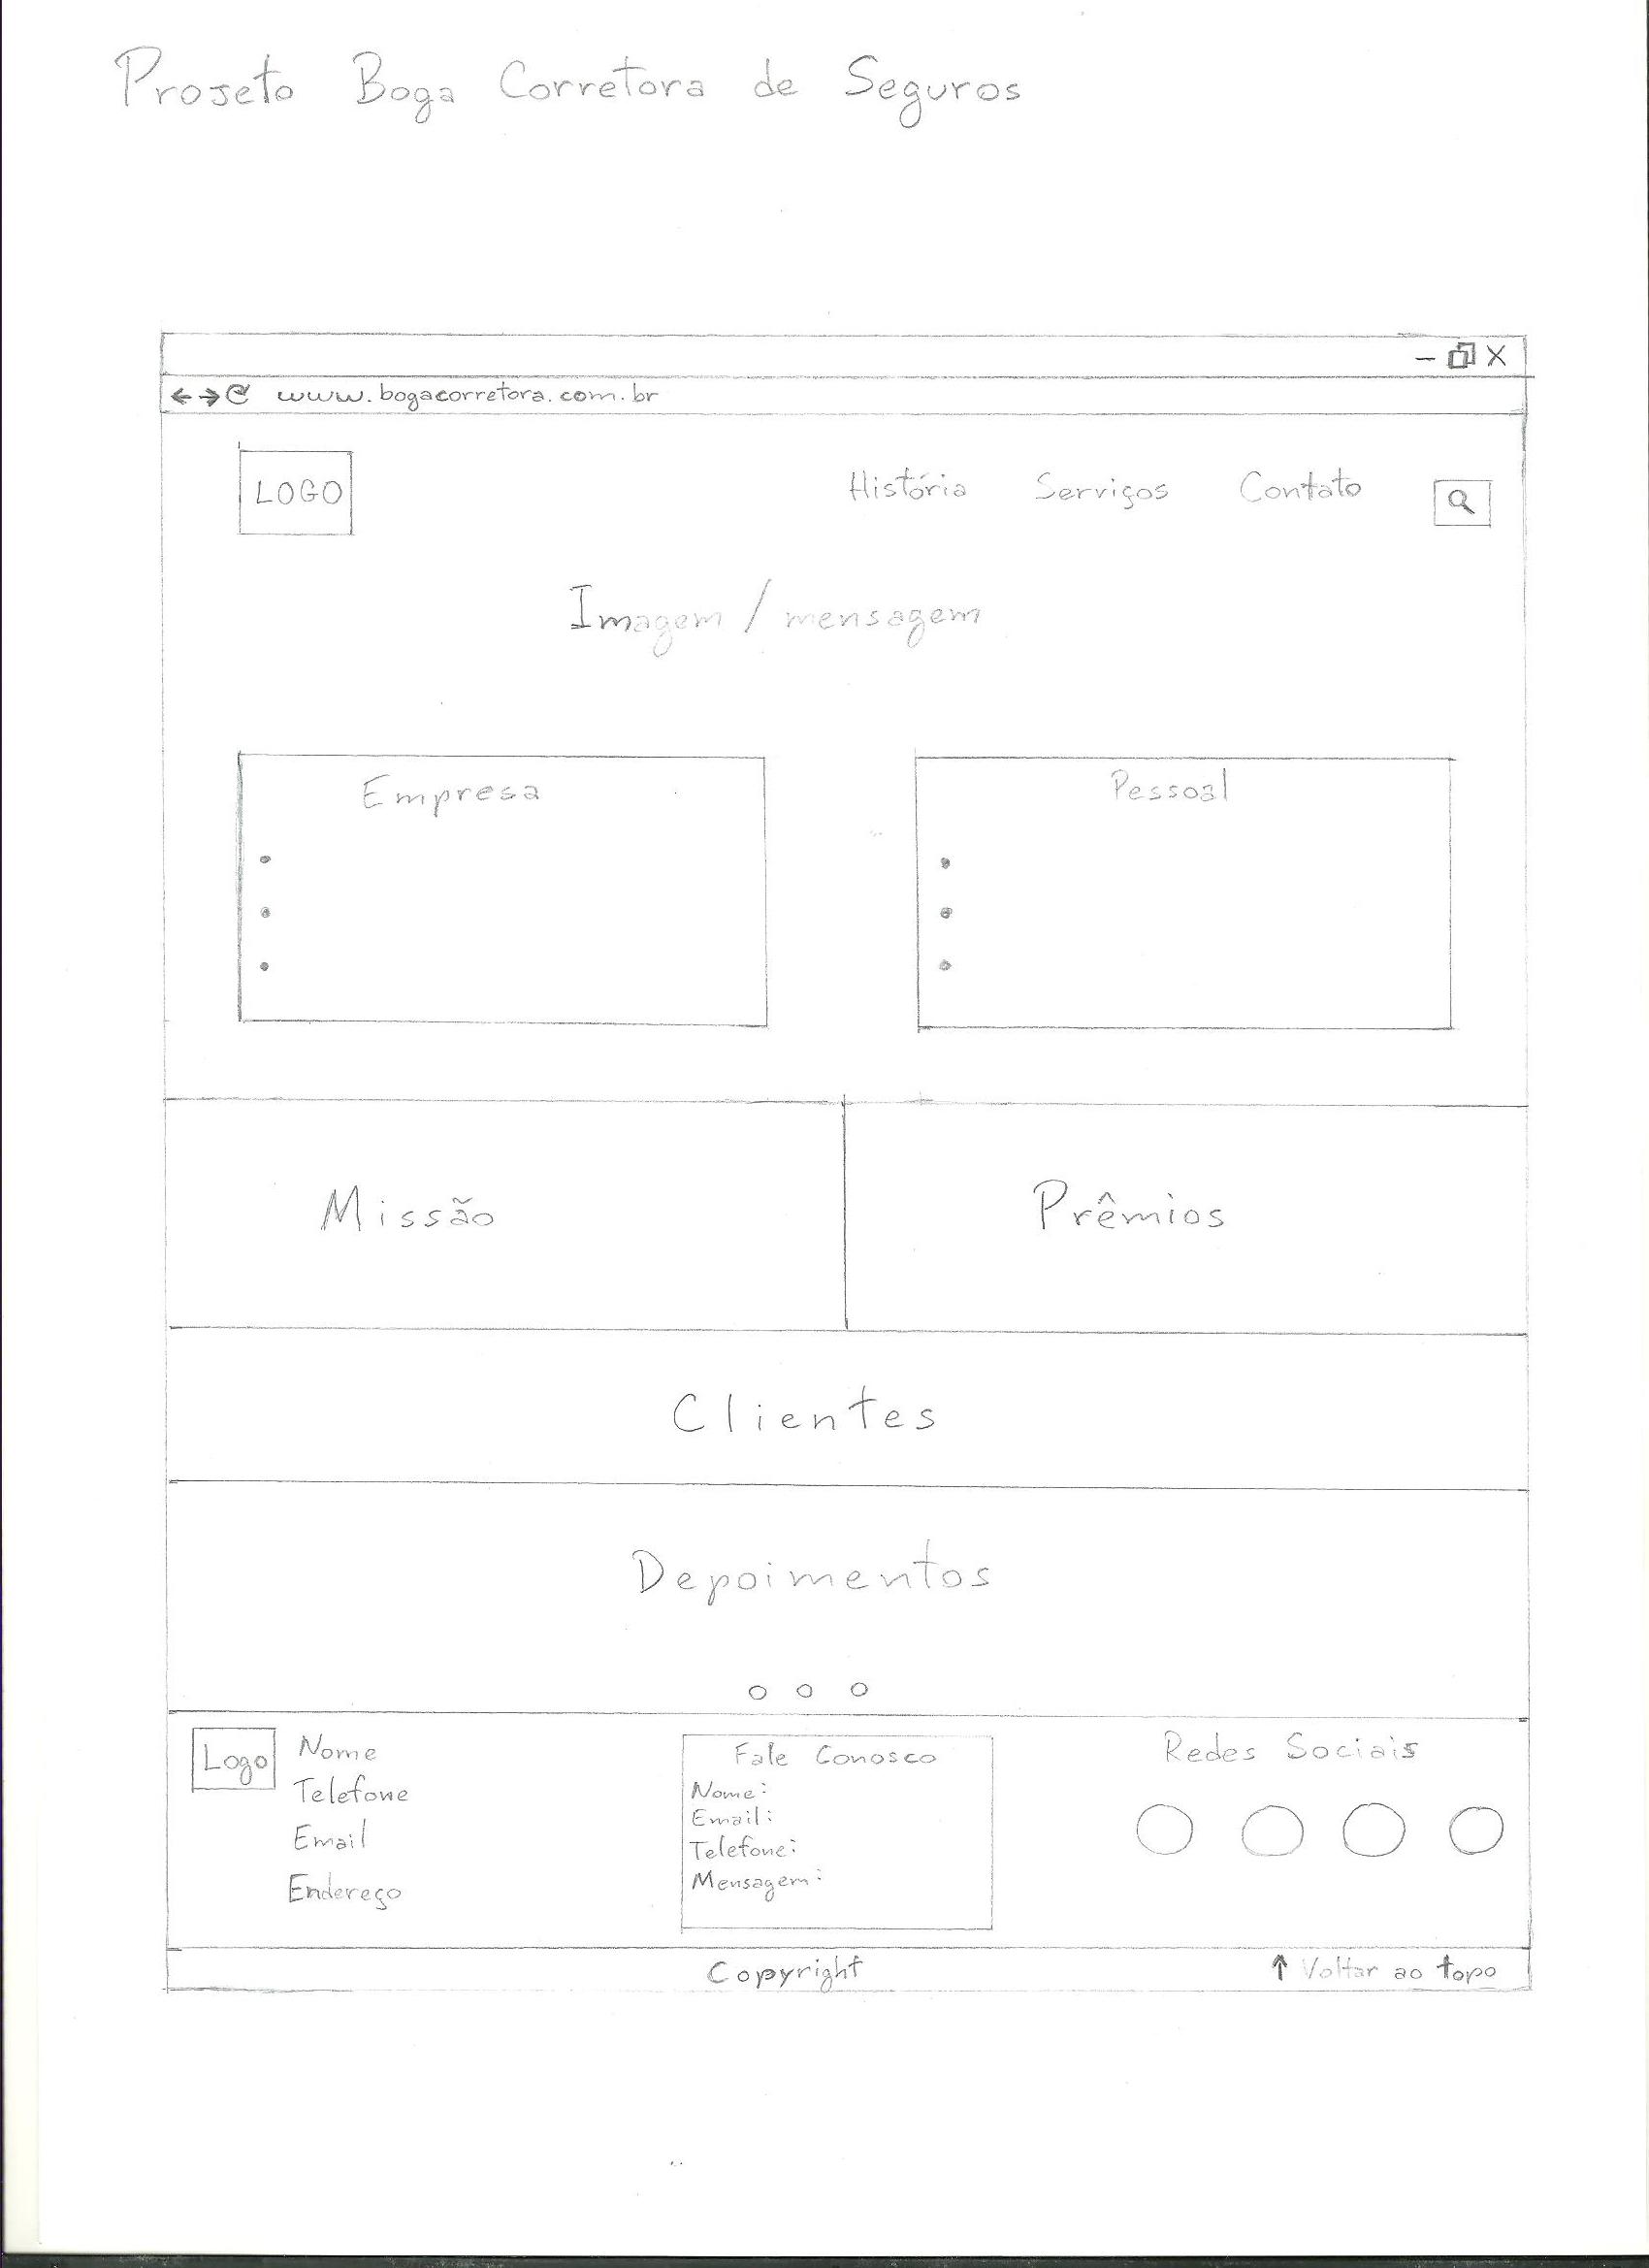 Projeto Boga Corretora de Seguros
www.bogacorretora.com.br
LOGO História Serviços Contato
Imagem / mensagem
Empresa Pessoal
Missão Prêmios
Clientes
Depoimentos
Logo Nome
Telefone
Email
Endereço
Fale Conosco
Nome:
Email:
Telefone:
Mensagem:
Redes Sociais
Copyright ↑ Voltar ao topo